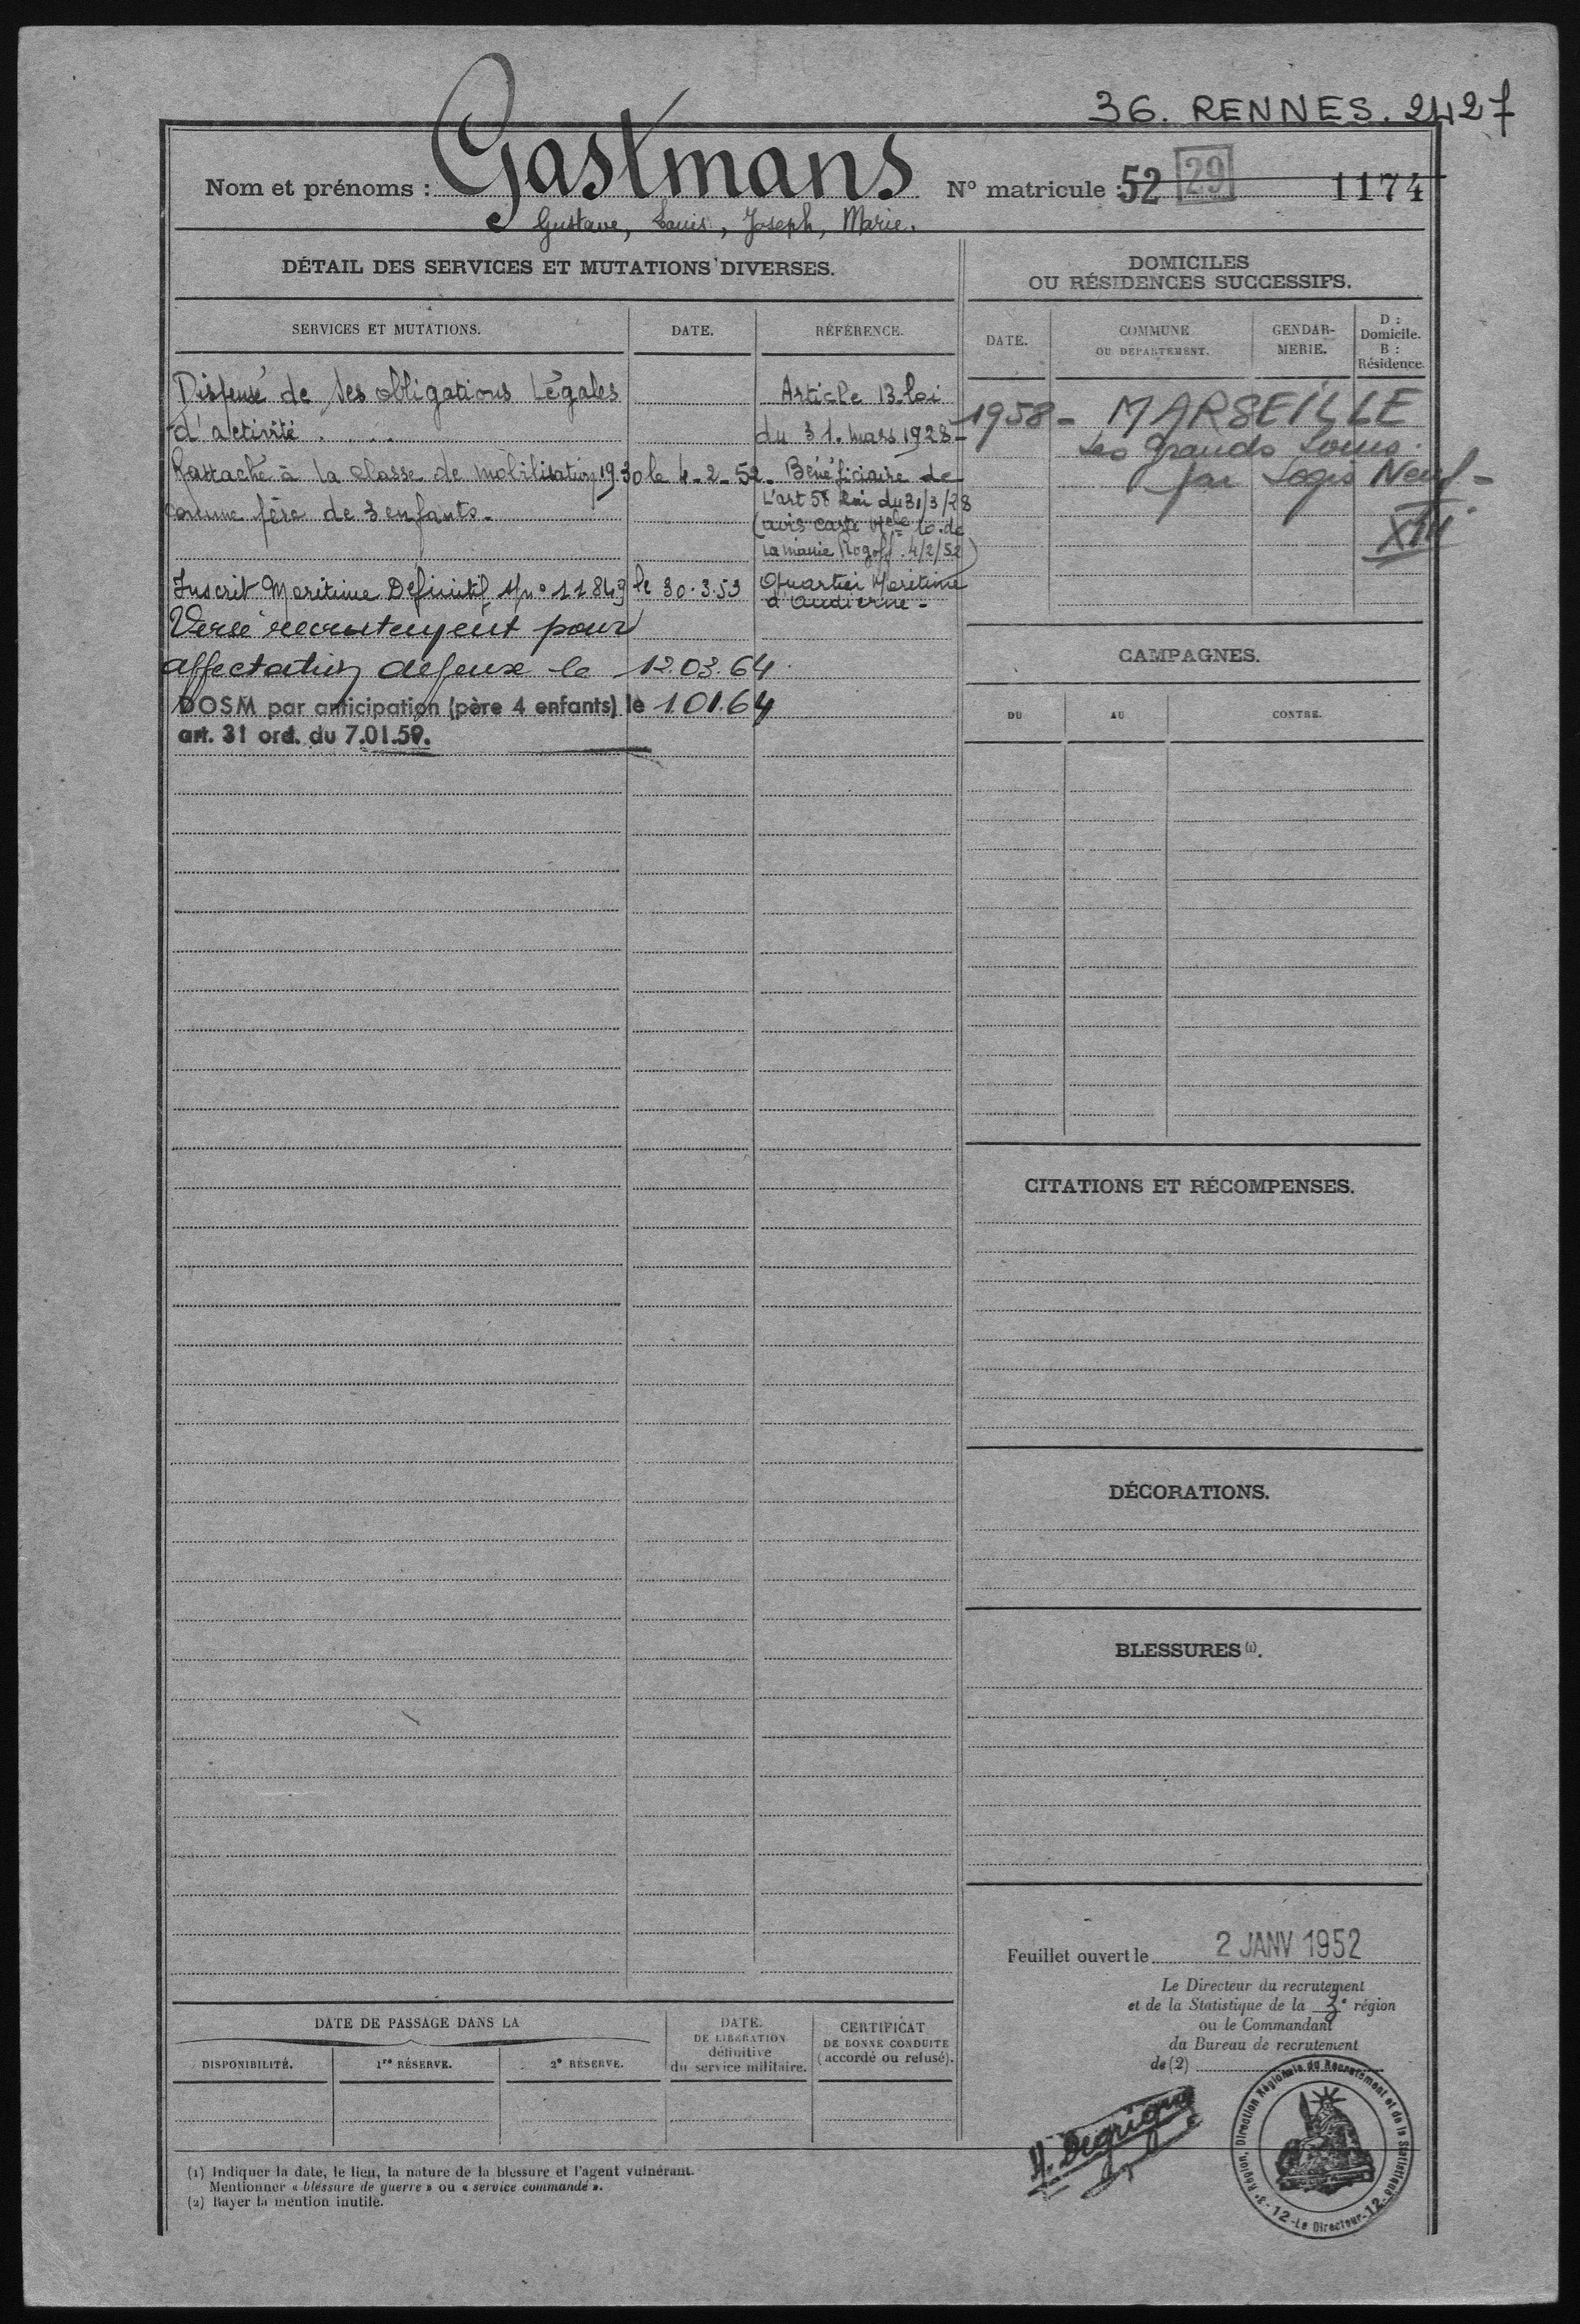 36. RENNES. 2427
Nom et prénoms : Gastmans
N° matricule : 52 29 1174
Gustave, Louis, Joseph, Marie.
DÉTAIL DES SERVICES ET MUTATIONS DIVERSES.
SERVICES ET MUTATIONS. DATE. RÉFÉRENCE.
Dispensé de ses obligations légales Article 13. loi
d'activité . . . . du 31. mars 1928-
Rattaché à la classe de mobilisation 1930 le 4-2-52. Bénéficiaire de
comme père de 3 enfants. L'art 58 Loi du 31/3/28
(avis carte de
la mairie 4/2/52)
Inscrit Maritime Définitif n° 11849 le 30.3.53 Quartier Maritime
d'Audierne-
Versé recrutement pour
affectation défense le 12.03.64.
DOSM par anticipation (père 4 enfants) le 1.01.64
art. 31 ord. du 7.01.59.
DOMICILES
OU RÉSIDENCES SUCCESSIFS.
DATE. COMMUNE
OU DÉPARTEMENT. GENDAR-
MERIE. D :
Domicile.
B :
Résidence.
1958- MARSEILLE
Les Grands
par Logis Neuf-
XIII
CAMPAGNES.
DU AU CONTRE.
CITATIONS ET RÉCOMPENSES.
DÉCORATIONS.
BLESSURES (1).
Feuillet ouvert le 2 JANV 1952
Le Directeur du recrutement
et de la Statistique de la 3e région
ou le Commandant
du Bureau de recrutement
de (2)
3e Région. Direction Régionale du Recrutement et de la Statistique
-12- Le Directeur -12-
DATE DE PASSAGE DANS LA
DISPONIBILITÉ. 1re RÉSERVE. 2e RÉSERVE.
DATE.
DE LIBÉRATION
définitive
du service militaire.
CERTIFICAT
DE BONNE CONDUITE
(accordé ou refusé).
(1) Indiquer la date, le lieu, la nature de la blessure et l'agent vulnérant.
Mentionner « blessure de guerre » ou « service commandé ».
(2) Rayer la mention inutile.